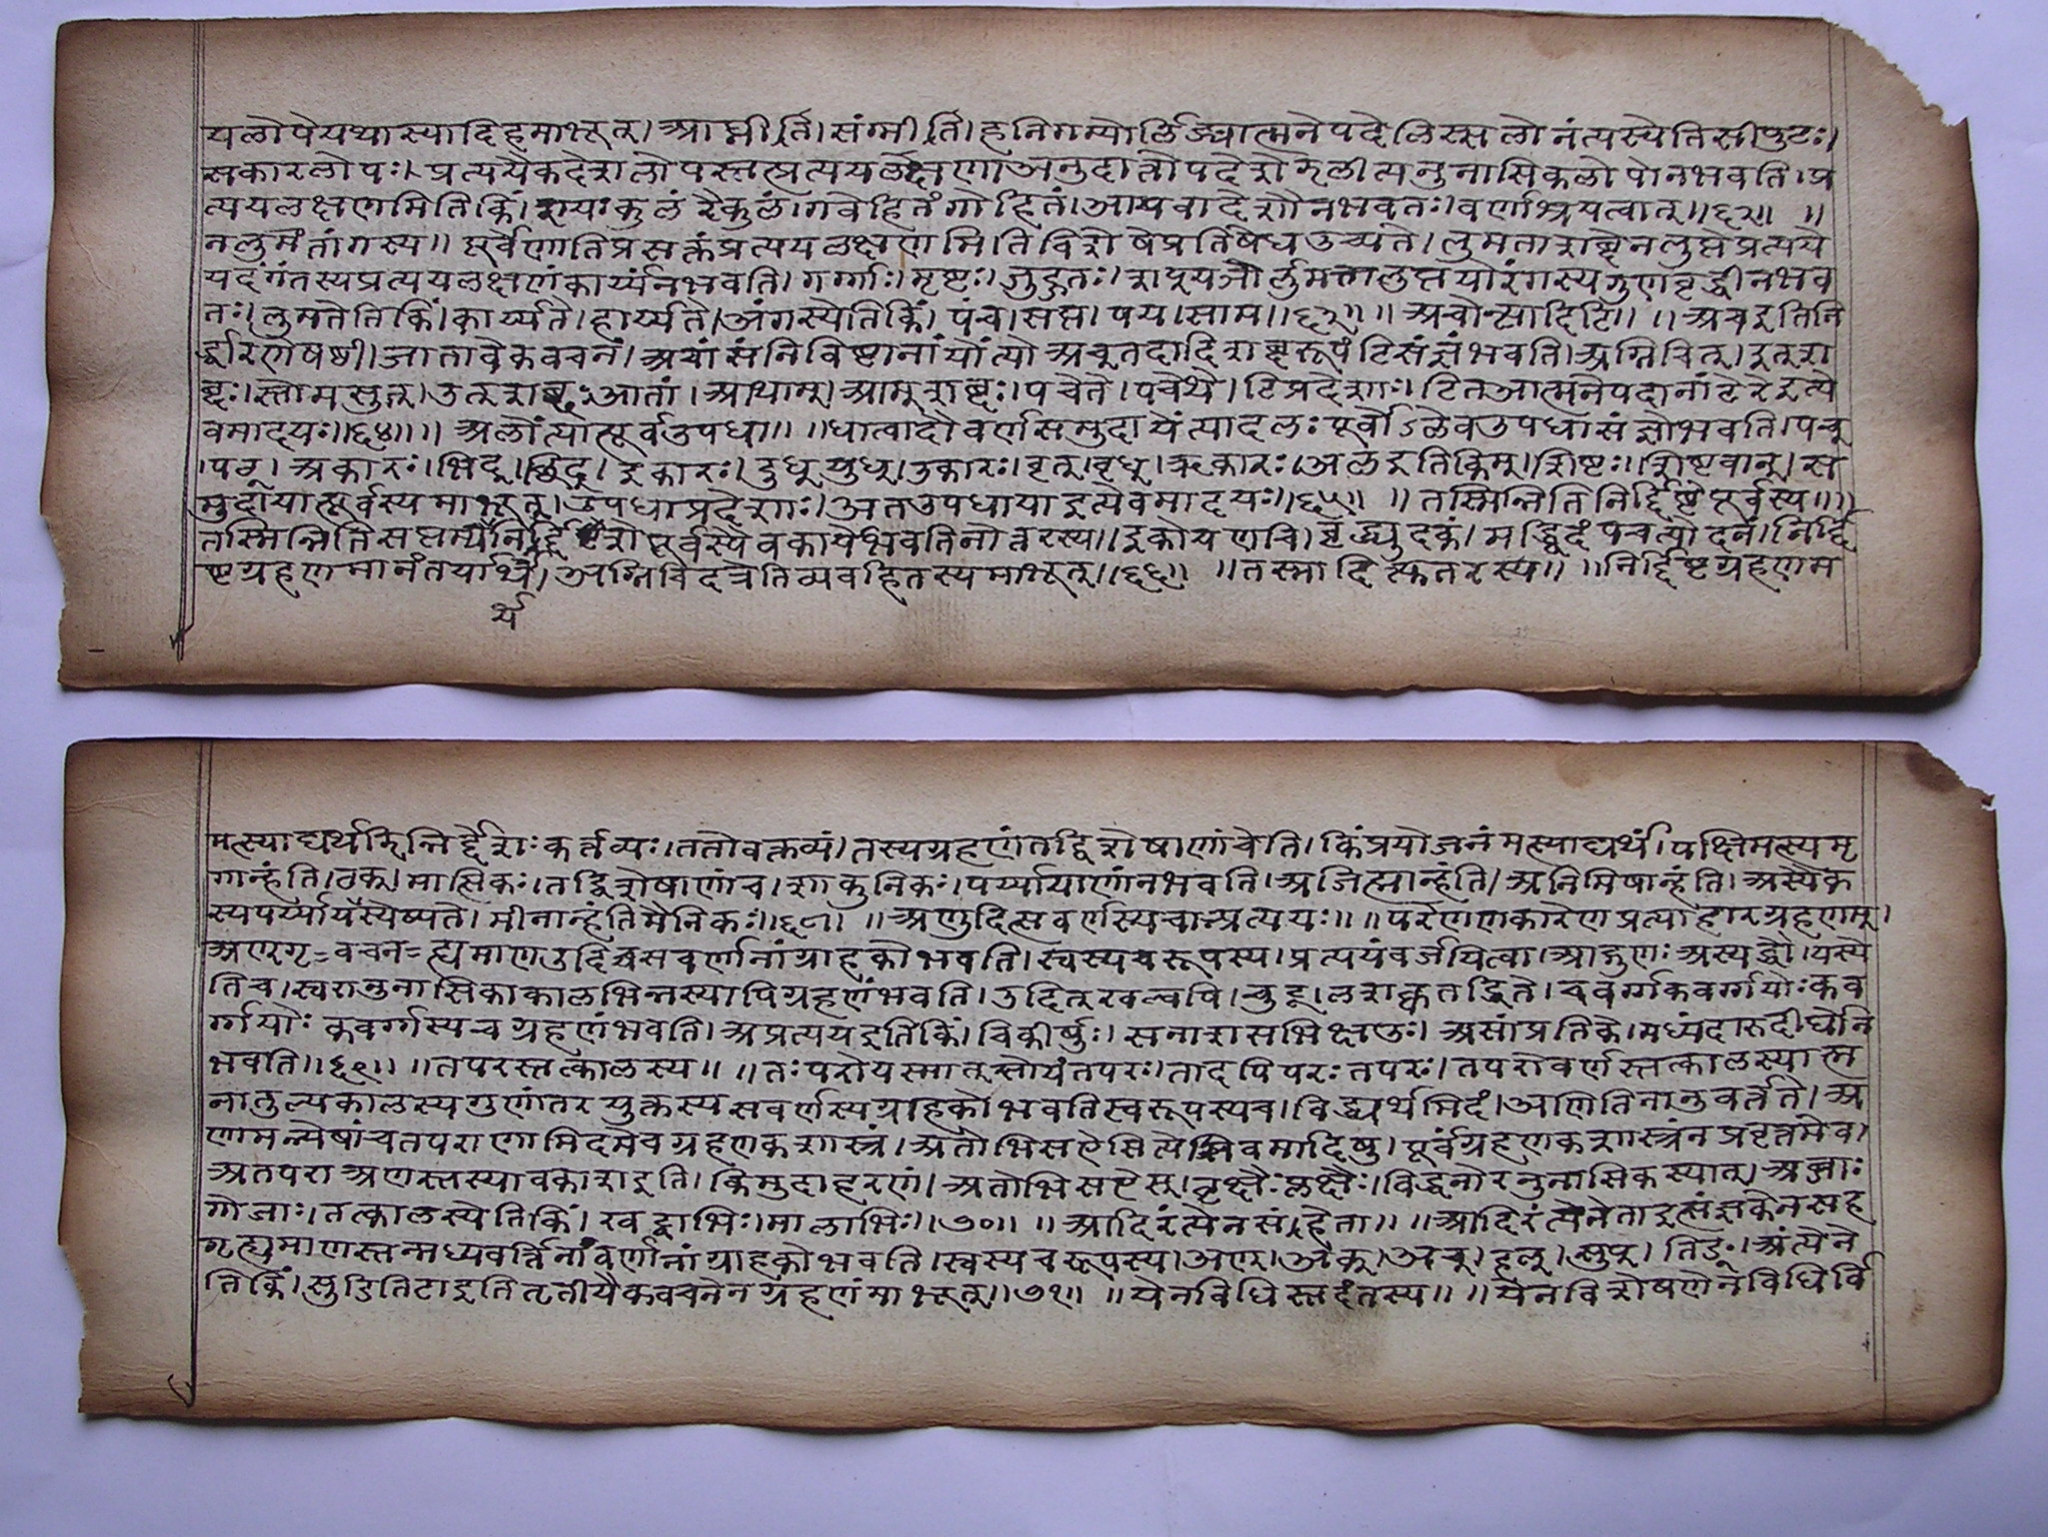 यलोपेयथास्यादिहमाभूत्। आघ्नीर्ति। संग्मीर्ति। हनिगम्योर्लिङ्यात्मनेपदेलिस्सलोनंत्यस्येतिसीयुटः।
सकारलोपः। प्रत्ययैकदेशलोपस्तत्प्रत्ययलक्षेणाअनुदात्तोपदेशेझलीत्यनुनासिकलोपोनभवति। प्र
त्ययलक्षणमितिकिं। रायःकुलं रैकुलं। गवेहितंगोहितं। आयवादेशौनभवतः। वर्णाश्रयत्वात्॥६२॥ ॥
नलुमतांगस्य॥ पूर्वेणातिप्रसक्तंप्रत्ययलक्षणमितिविशेषेप्रतिषेधउच्यते। लुमताशब्देनलुप्तेप्रत्यये
यदंगंतस्यप्रत्ययलक्षणंकार्य्यंनभवति। गर्ग्गाः। मृष्टः। जुहुतः। शप्‌यञोर्लुमतालुप्तयोरंगस्यगुणवृद्धीनभव
तः। लुमतेतिकिं। कार्य्यते। हार्य्यते। अंगस्येतिकिं। पंच। सप्त। पय। साम॥६३॥ ॥ अचोन्त्यादिटि॥ ॥ अचइतिनि
र्द्धारणेषष्ठी। जातावेकवचनं। अचांसंनिविष्टानांयोंत्योअच्‌तदादिशब्दरूपंटिसंज्ञंभवति। अग्निचित्। इत्‌श
ब्दः। सोमसुत्। उत्‌शब्दः आतां। आथाम्। आम्‌शब्दः। पचेते। पचेथे। टिप्रदेशाः। टितआत्मनेपदानांटेरेइत्ये
वमादयः॥६४॥ ॥ अलोंत्यात्पूर्वउपधा॥ ॥ धात्वादौवर्णसमुदायेंत्यादलः पूर्वोऽलेवउपधासंज्ञोभवति। पच्
।पच्। अकारः। भिद्। छिद्। इकारः। बुध्‌युध्। उकारः। वृत्। वृध्। ऋकारः। अलइतिकिम्। शिष्टः। शिष्टवान्। स
मुदायात्पूर्वस्यमाभूत्। उपधाप्रदेशाः। अतउपधायाइत्येवमादयः॥६५॥ ॥ तस्मिन्नितिनिर्द्दिष्टेपूर्वस्य॥ ॥
तस्मिन्नितिसप्तम्यर्थेनिर्द्दिष्टेपूर्वस्यैवकार्यंभवतिनोत्तरस्य। इकोयणचि। दध्युदकं। मद्ध्विदं पचत्योदनं। निर्द्दि
ष्टग्रहणमानंतर्यार्थं। अग्निचिदत्रेतिव्यवहितस्यमाभूत्॥६६॥ ॥ तस्मादित्युत्तरस्य॥ ॥ निर्द्दिष्टग्रहणम
र्य
मत्स्याद्यर्थमिन्निर्द्देशः कर्त्तव्यः। ततोवक्तव्यं। तस्यग्रहणंतद्विशेषाणांचेति। किंप्रयोजनंमत्स्याद्यर्थं। पक्षिमत्स्यमृ
गान्हंति। ठक्। मात्सिकः। तद्विशेषाणांच। शाकुनिकः। पर्य्यायाणांनभवति। अजिह्मान्हंति। अनिमिषान्हंति। अस्यैक
स्यपर्य्यायस्येष्यते। मीनान्हंतिमैनिकः॥६८॥ ॥ अणुदित्सवर्णस्यचाप्रत्ययः॥ ॥ परेणणकारेणप्रत्याहारग्रहणम्।
अण्‌गृ=वचन=ह्यमाणउदिच्चसवर्णानांग्राहकोभवति। स्वस्यचरूपस्य। प्रत्ययंवर्जयित्वा। आद्गुणः अस्यद्वौ। यस्ये
तिच। स्वरानुनासिकाकालभिन्नस्यापिग्रहणंभवति। उदित्‌खल्वपि। चुटू। लशक्वतद्धिते। चवर्ग्गकवर्ग्गयोः कव
र्ग्गयोः कवर्ग्गस्यचग्रहणंभवति। अप्रत्ययइतिकिं। चिकीर्षुः। सनाशसभिक्षउः। असांप्रतिके। मध्यंदारुदीर्घोन
भवति॥६९॥ ॥ तपरस्तत्कालस्य॥ ॥ तः परोयस्मात्‌सोयंतपरः। तादपिपरः तपरः। तपरोवर्णस्तत्कालस्यात्म
नातुल्यकालस्यगुणांतरयुक्तस्यसवर्णस्यग्राहकोभवतिस्वरूपस्यच। विद्ध्यर्थमिदं। अणितिनानुवर्तते। अ
णामन्येषांचतपराणामिदमेवग्रहणकशास्त्रं। अतोभिसऐसित्येवमादिषु। पूर्वग्रहणकशास्त्रंनप्रवृत्तमेव।
अतपराअणस्तस्यावकाशइति। किमुदाहरणं। अतोभिसऐस्। वृक्षैः प्लक्षैः। विड्वनोरनुनासिकस्यात्। अब्जाः
गोजाः। तत्कालस्येतिकिं। खट्वाभिः। मालाभिः॥७०॥ ॥ आदिरंत्येनसहेता॥ ॥ आदिरंत्येनेताइत्संज्ञकेनसह
गृह्यमाणस्तन्मध्यवर्त्तिनांवर्णानांग्राहकोभवति। स्वस्यचरूपस्य। अण्। अक्। अच्। हल्। सुप्। तिङ्। अंत्येने
तिकिं। सुडितिटाइतितृतीयैकवचनेनग्रहणंमाभूत्॥७१॥ ॥ येनविधिस्तदंतस्य॥ ॥ येनविशेषणेनविधिर्वि